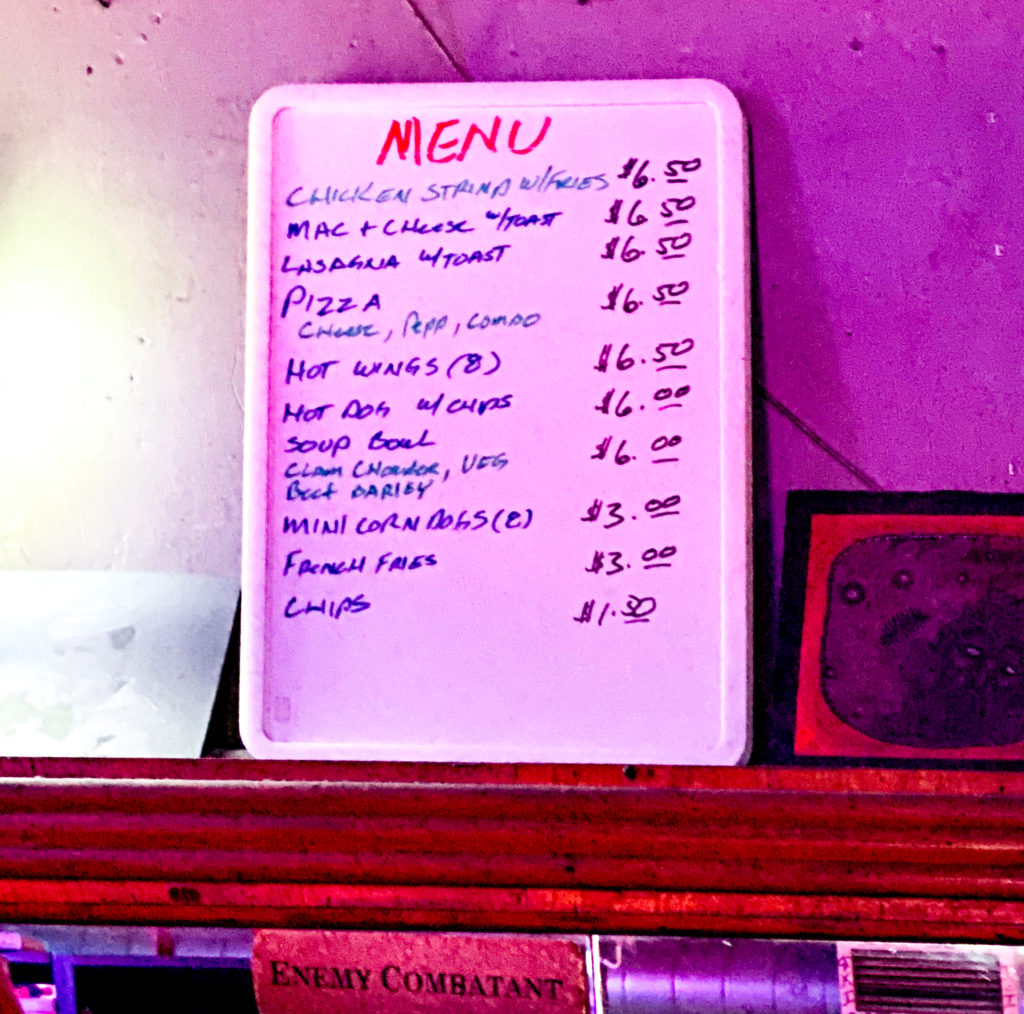 MENU
CHICKEN STRIPS W/FRIES $6.50
MAC + CHEESE W/TOAST $6.50
LASAGNA W/TOAST $6.50
PIZZA $6.50
CHEESE, PEPP, COMBO
HOT WINGS (8) $6.50
HOT DOG W/ CHIPS $6.00
SOUP BOWL $6.00
CLAM CHOWDER, VEG
BEEF BARLEY
MINI CORN DOGS (8) $3.00
FRENCH FRIES $3.00
CHIPS $1.50
ENEMY COMBATANT